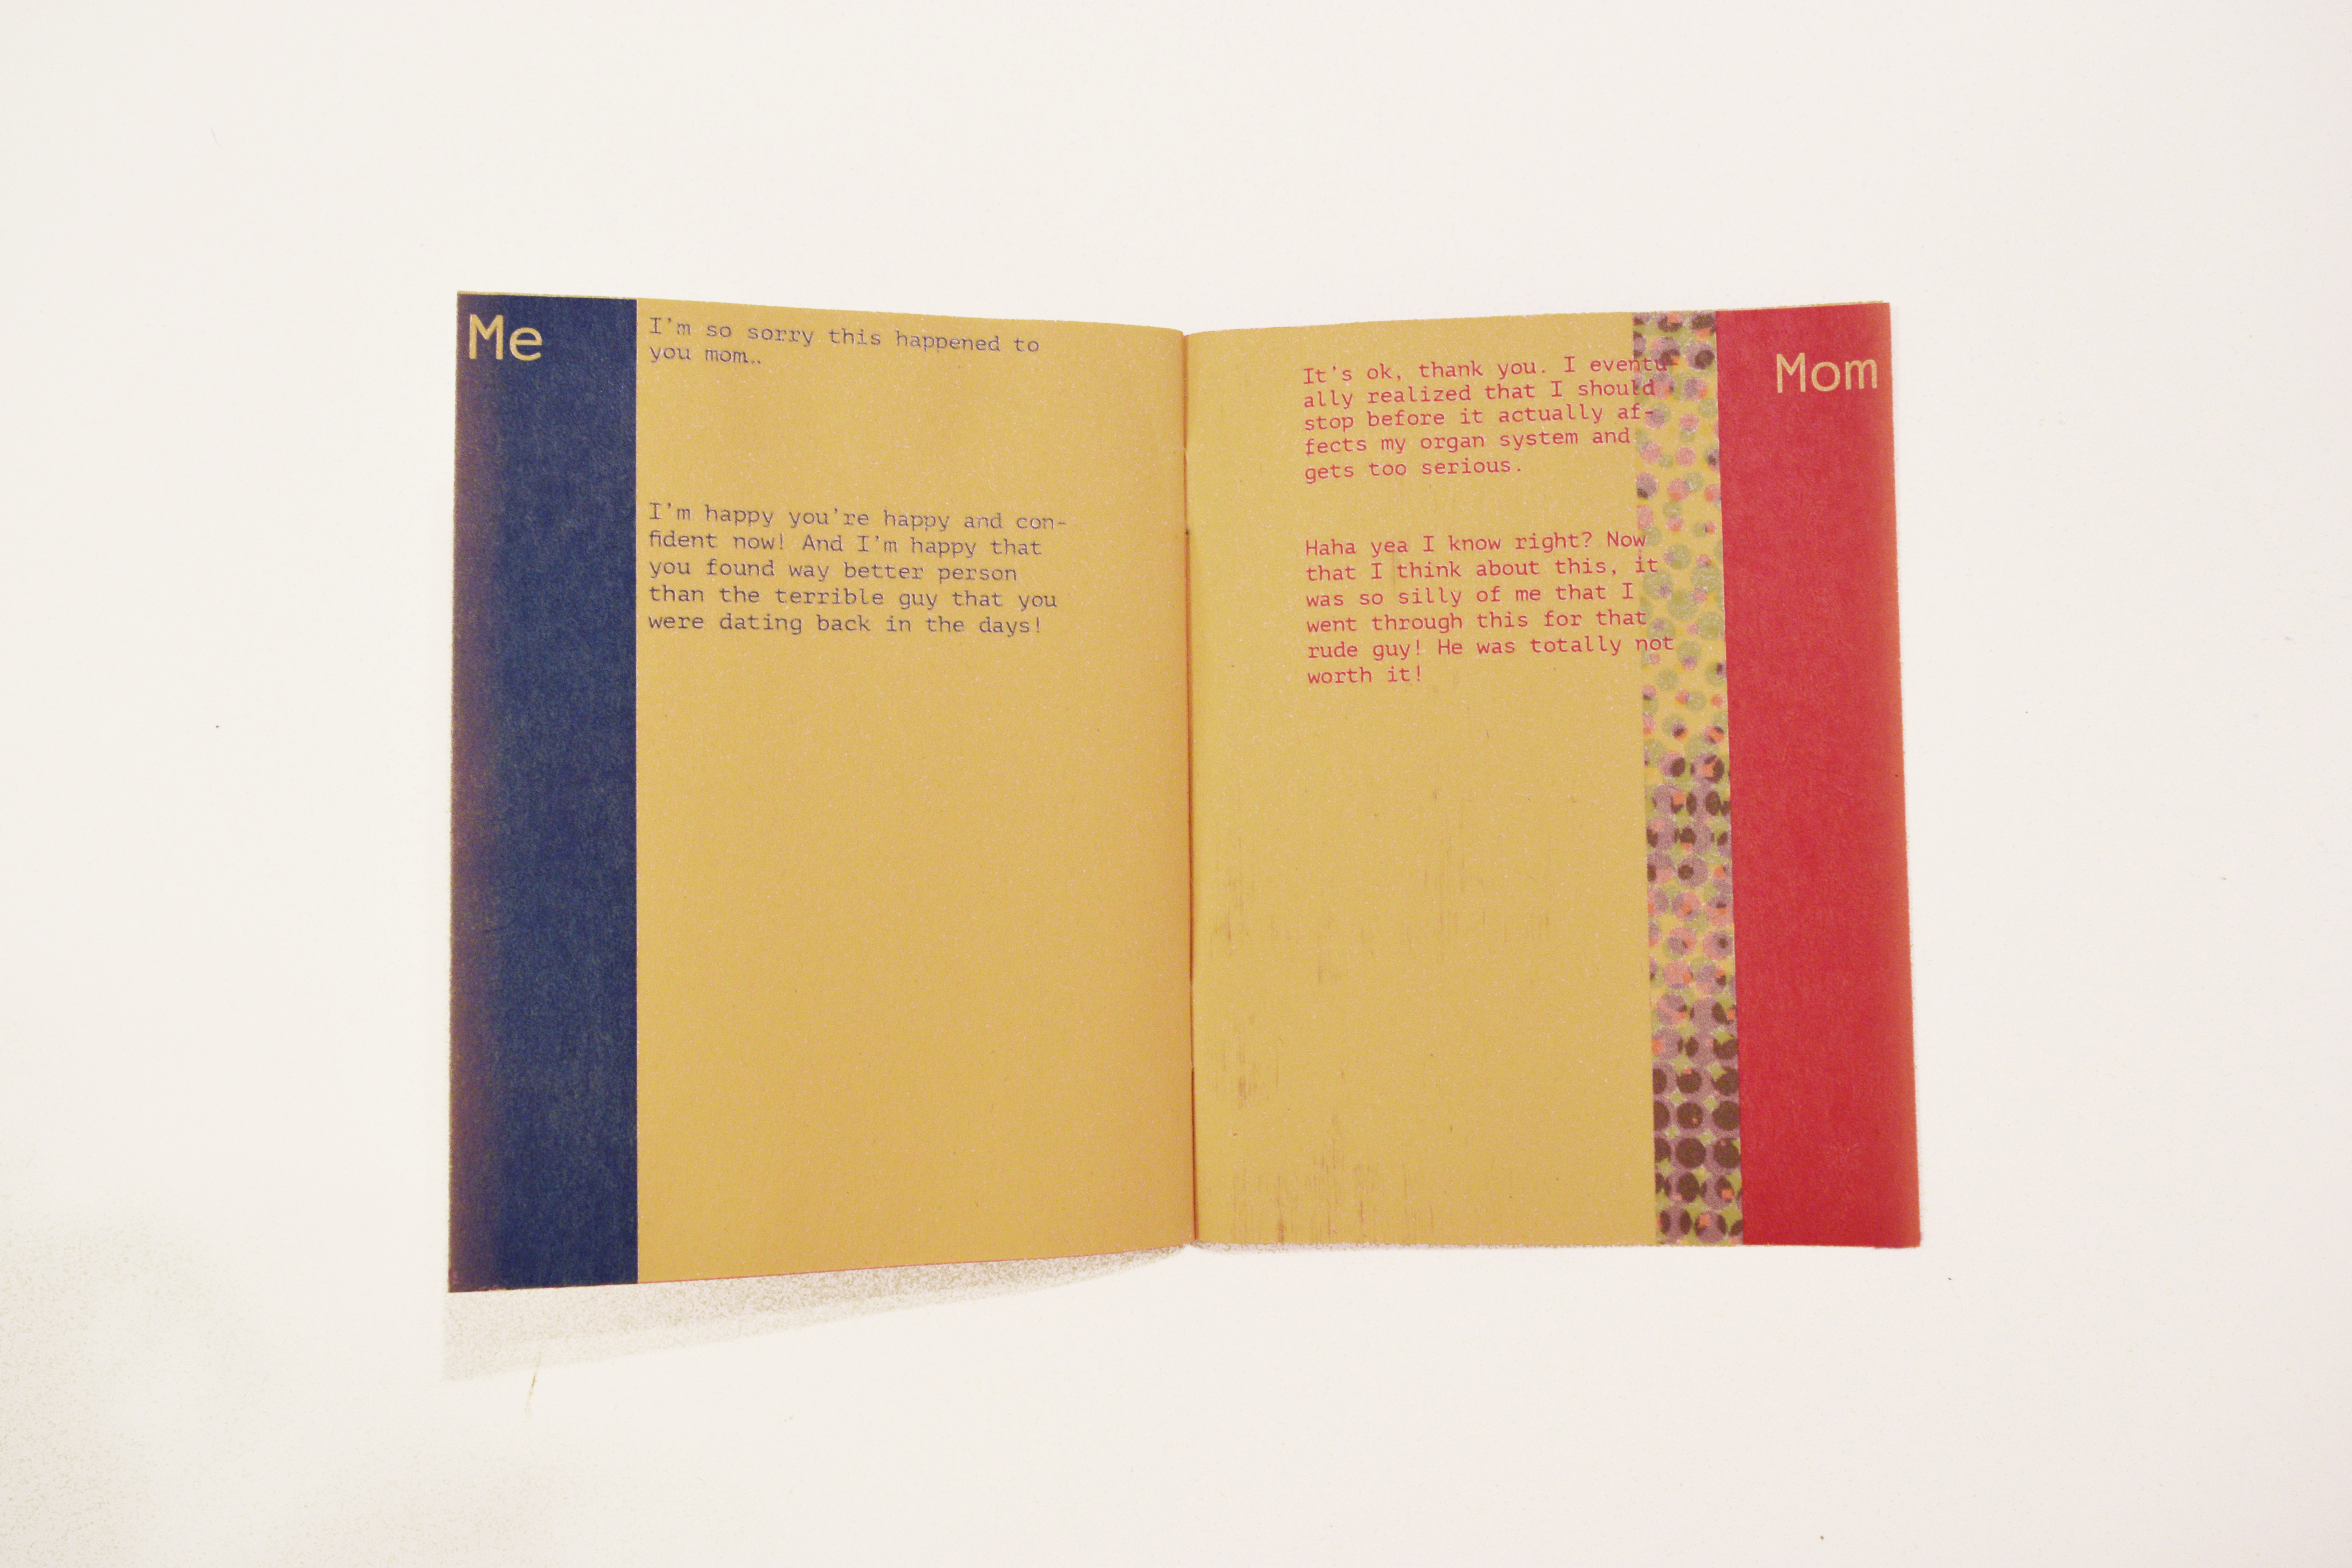 Me
I'm so sorry this happened to
you mom..
I'm happy you're happy and con-
fident now! And I'm happy that
you found way better person
than the terrible guy that you
were dating back in the days!
Mom
It's ok, thank you. I eventu-
ally realized that I should
stop before it actually af-
fects my organ system and
gets too serious.
Haha yea I know right? Now
that I think about this, it
was so silly of me that I
went through this for that
rude guy! He was totally not
worth it!